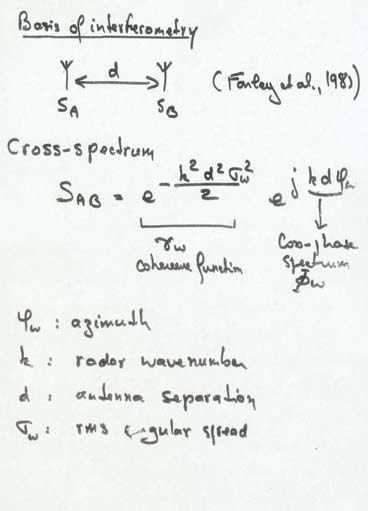 Basis of interferometry
d
S_A S_B (Farley et al., 1981)
Cross-spectrum
S_AB = e^{-\frac{k^2 d^2 σ_w^2}{2}} e^{j k d φ_w}
γ_w
coherence function
Cross-phase
spectrum
Φ_w
φ_w : azimuth
k : radar wavenumber
d : antenna separation
σ_w : rms angular spread